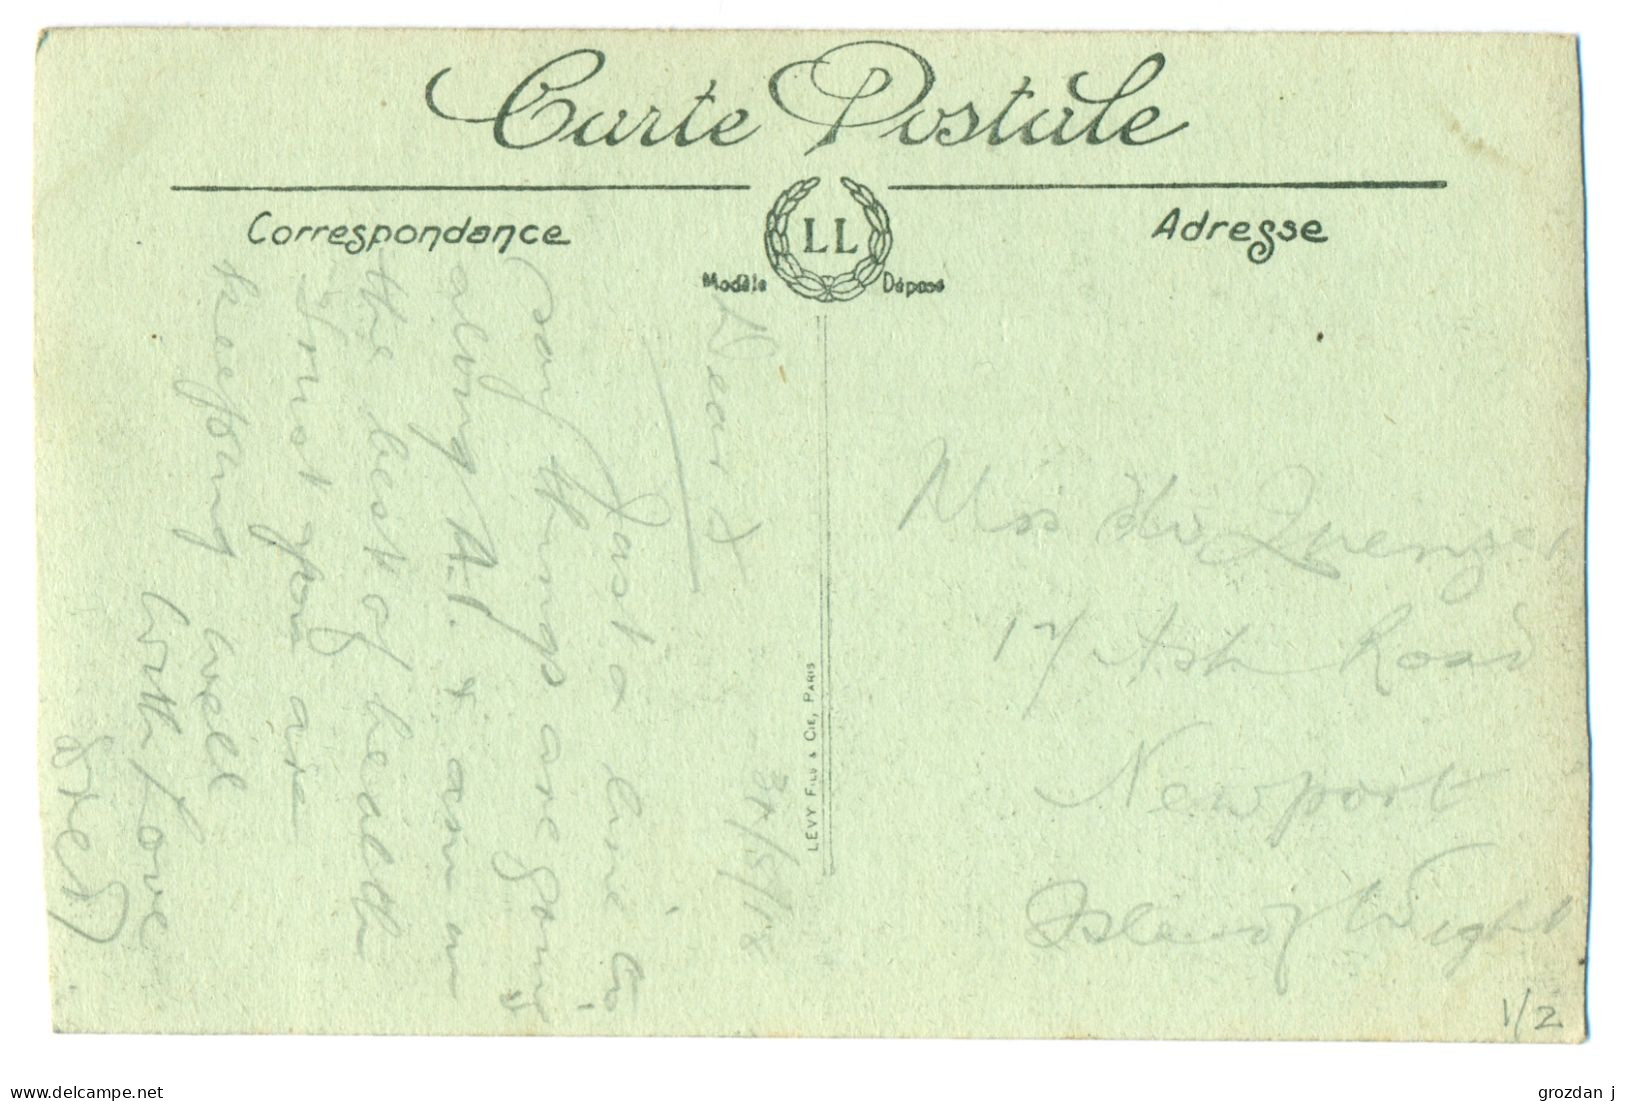 Carte Postale
Correspondance
LL
Modèle Déposé
Adresse
LÉVY FILS & CIE, PARIS
Dear
Just a line to
say things are going
along A.1. & am in
the best of health
Trust you are
keeping well
With love
Miss
17 Ash Road
Newport
Isle of Wight
1/2
www.delcampe.net
grozdan j